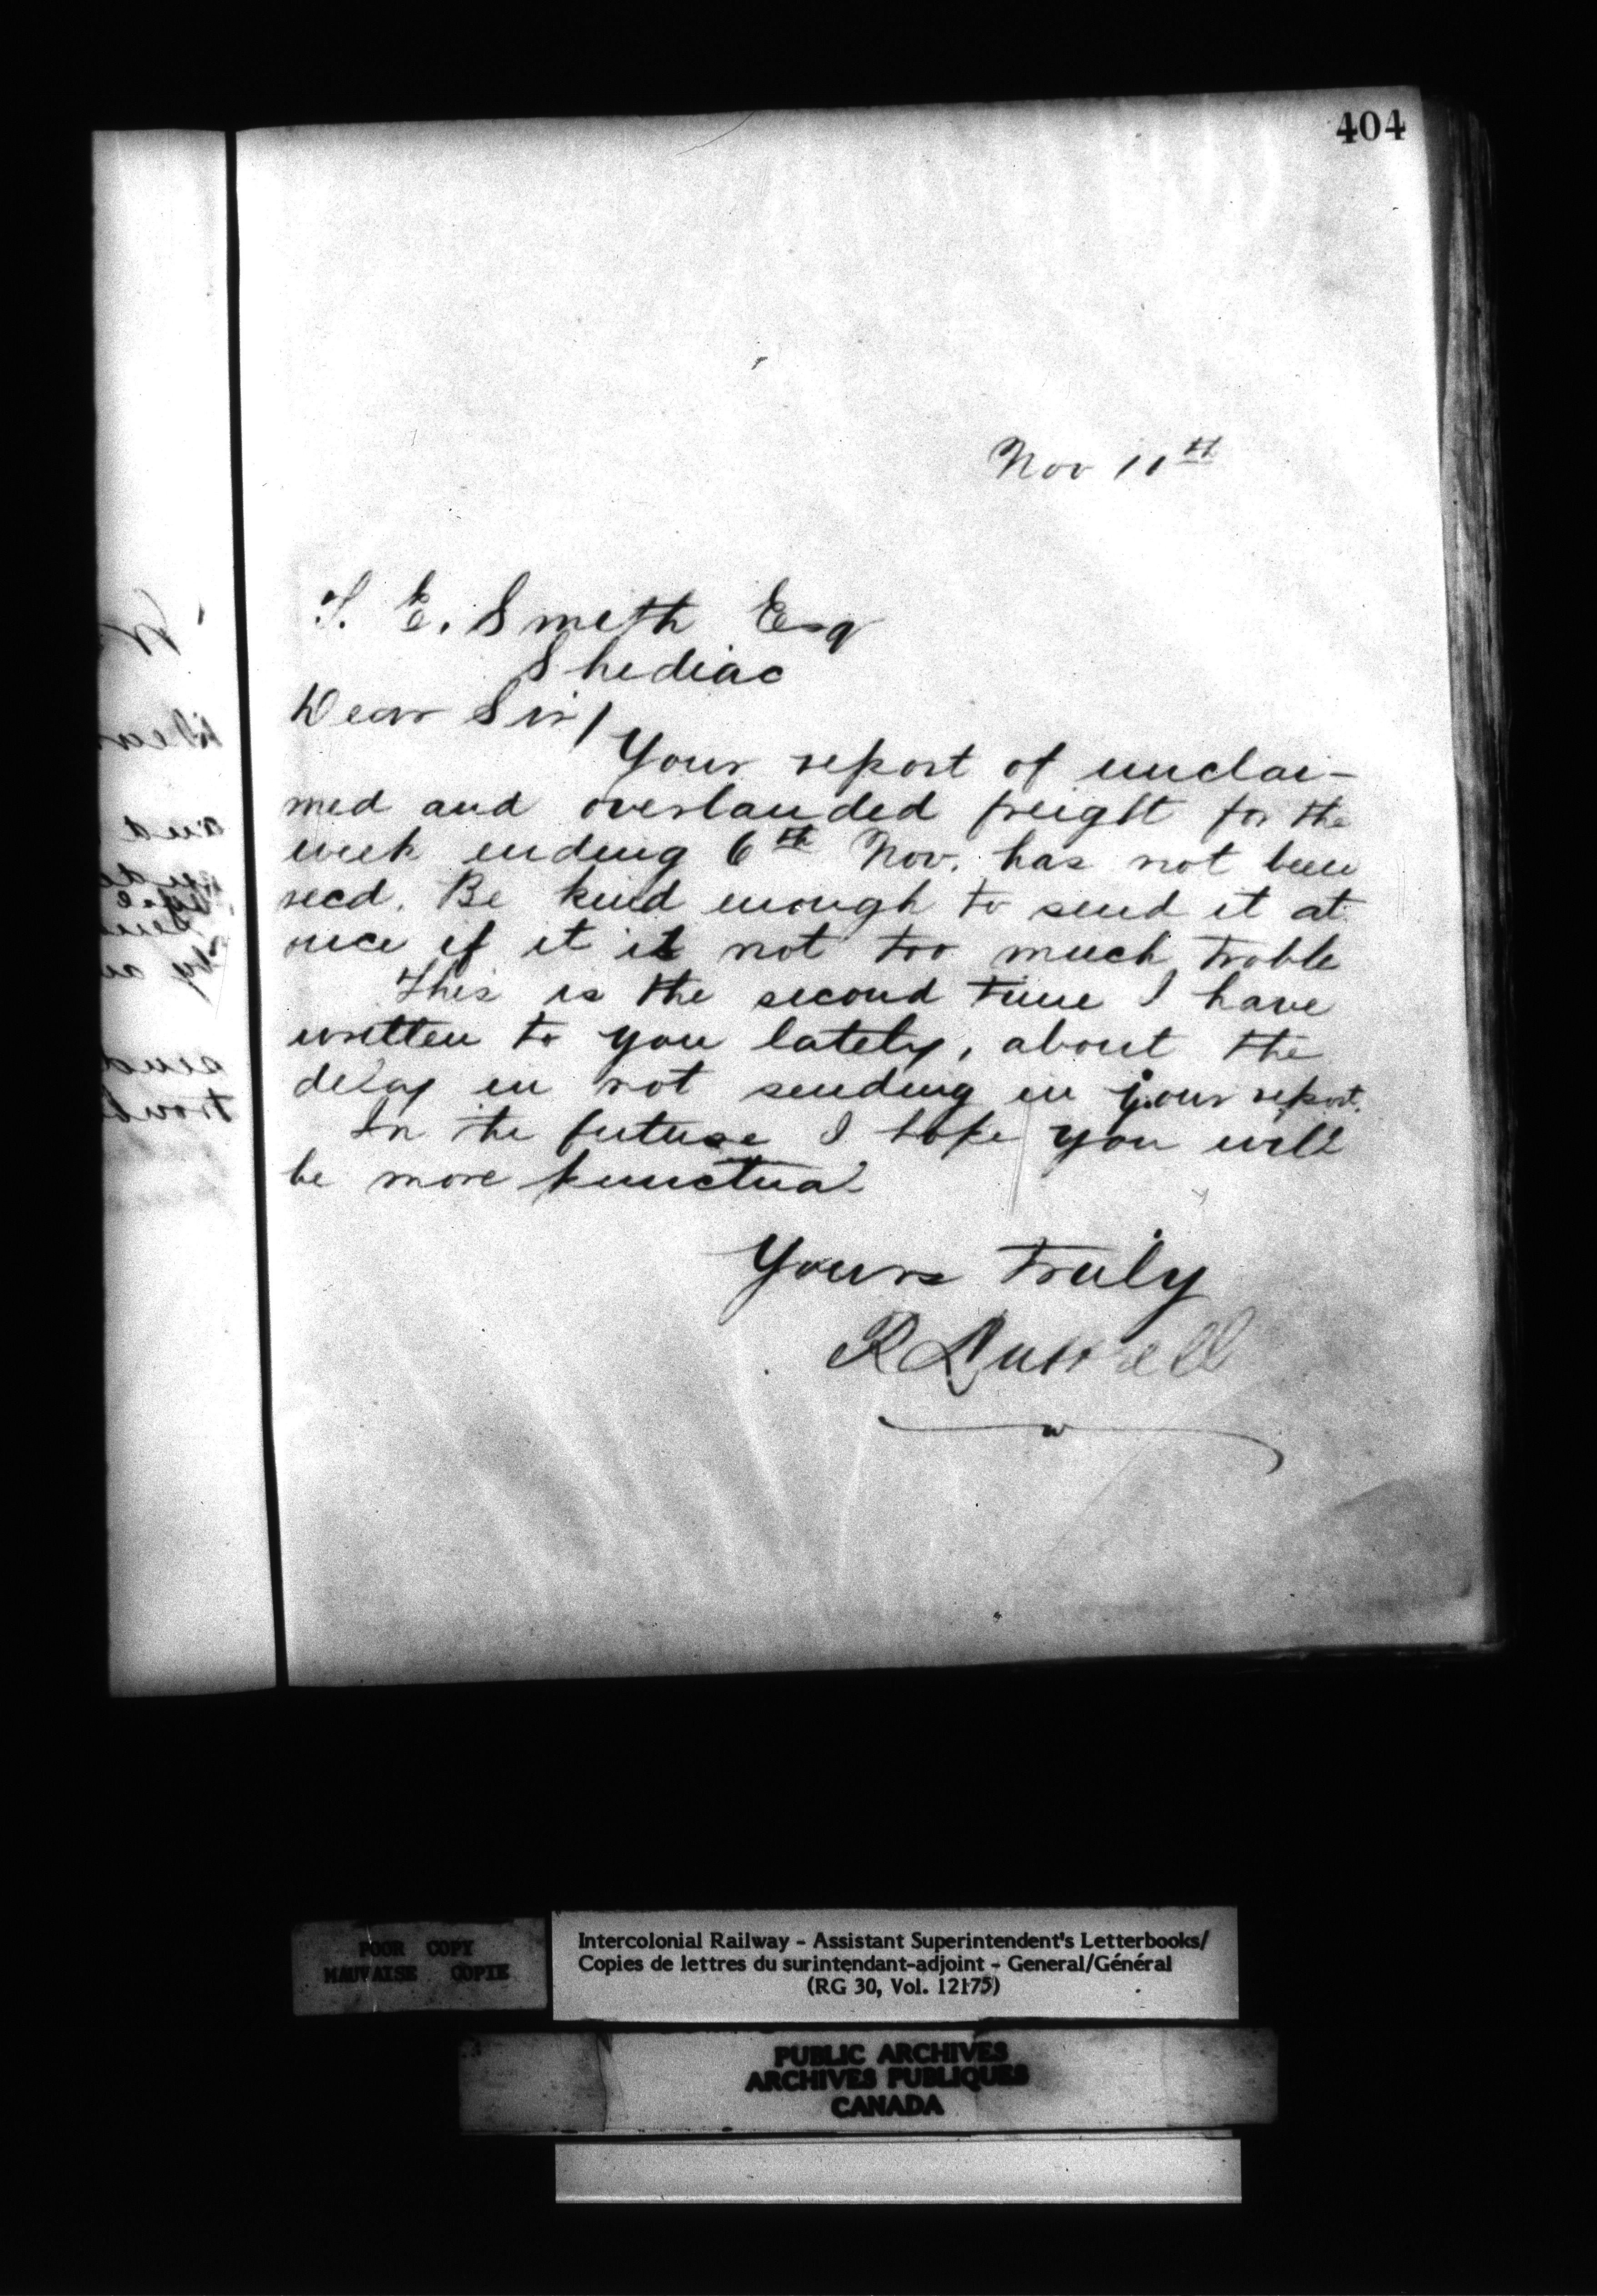 404
Nov 11th
T. E. Smith Esq
Shediac
Dear Sir/
Your report of unclai-
med and overlanded freight for the
week ending 6th Nov. has not been
recd. Be kind enough to send it at
once if it is not too much troble
This is the second time I have
written to you lately, about the
delay in not sending in your report.
In the future I hope you will
be more punctual
Yours truly
R Russell
POOR COPY
MAUVAISE COPIE
Intercolonial Railway - Assistant Superintendent's Letterbooks/
Copies de lettres du surintendant-adjoint - General/Général
(RG 30, Vol. 12175)
PUBLIC ARCHIVES
ARCHIVES PUBLIQUES
CANADA